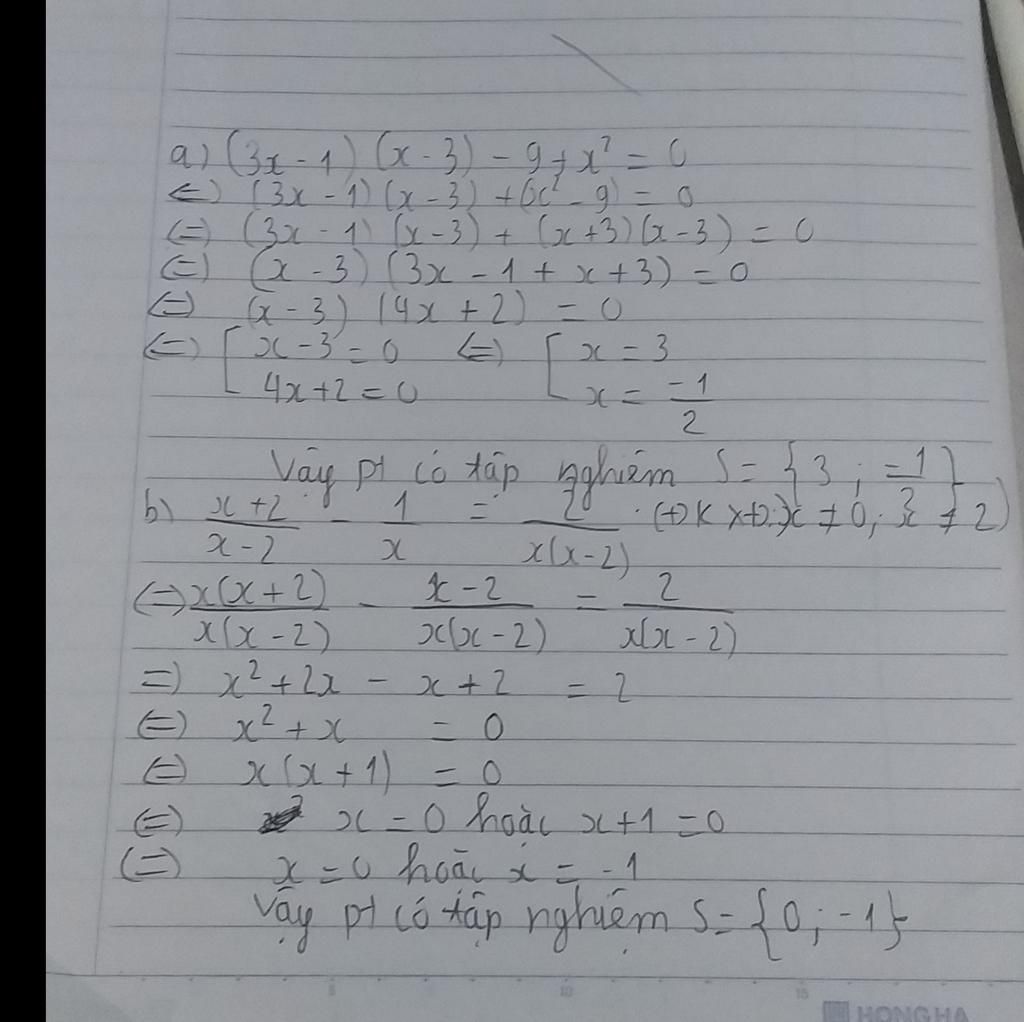 a) (3x - 1) (x - 3) - 9 + x² = 0
⇔ (3x - 1) (x - 3) + (x² - 9) = 0
⇔ (3x - 1) (x - 3) + (x + 3) (x - 3) = 0
⇔ (x - 3) (3x - 1 + x + 3) = 0
⇔ (x - 3) (4x + 2) = 0
⇔ [ x - 3 = 0 ⇔ [ x = 3
4x + 2 = 0 x = -1/2
Vậy pt có tập nghiệm S = {3 ; -1/2}
b) (x + 2)/(x - 2) - 1/x = 2/(x(x - 2)) . (ĐK XĐ: x ≠ 0; x ≠ 2)
⇔ x(x + 2)/(x(x - 2)) - (x - 2)/(x(x - 2)) = 2/(x(x - 2))
⇒ x² + 2x - x + 2 = 2
⇔ x² + x = 0
⇔ x(x + 1) = 0
⇔ x = 0 hoặc x + 1 = 0
⇔ x = 0 hoặc x = -1
Vậy pt có tập nghiệm S = {0; -1}
5 10 15
HONG HA